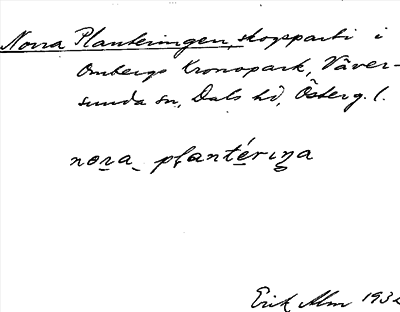 Norra Planteringen, skogsparti i
Ombergs Kronopark, Väver-
sunda sn, Dals hd, Österg. l.
nora planteriŋa
Erik Alm 193